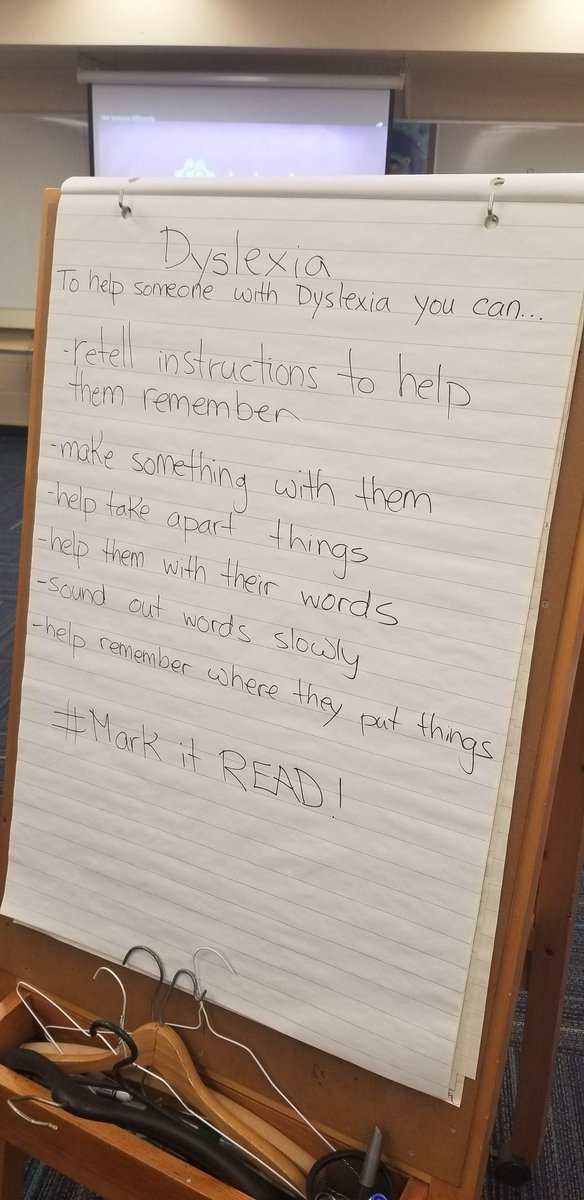 See dyslexia differently
Dyslexia
To help someone with Dyslexia you can...
-retell instructions to help
them remember
-make something with them
-help take apart things
-help them with their words
-sound out words slowly
-help remember where they put things
#Mark it READ!